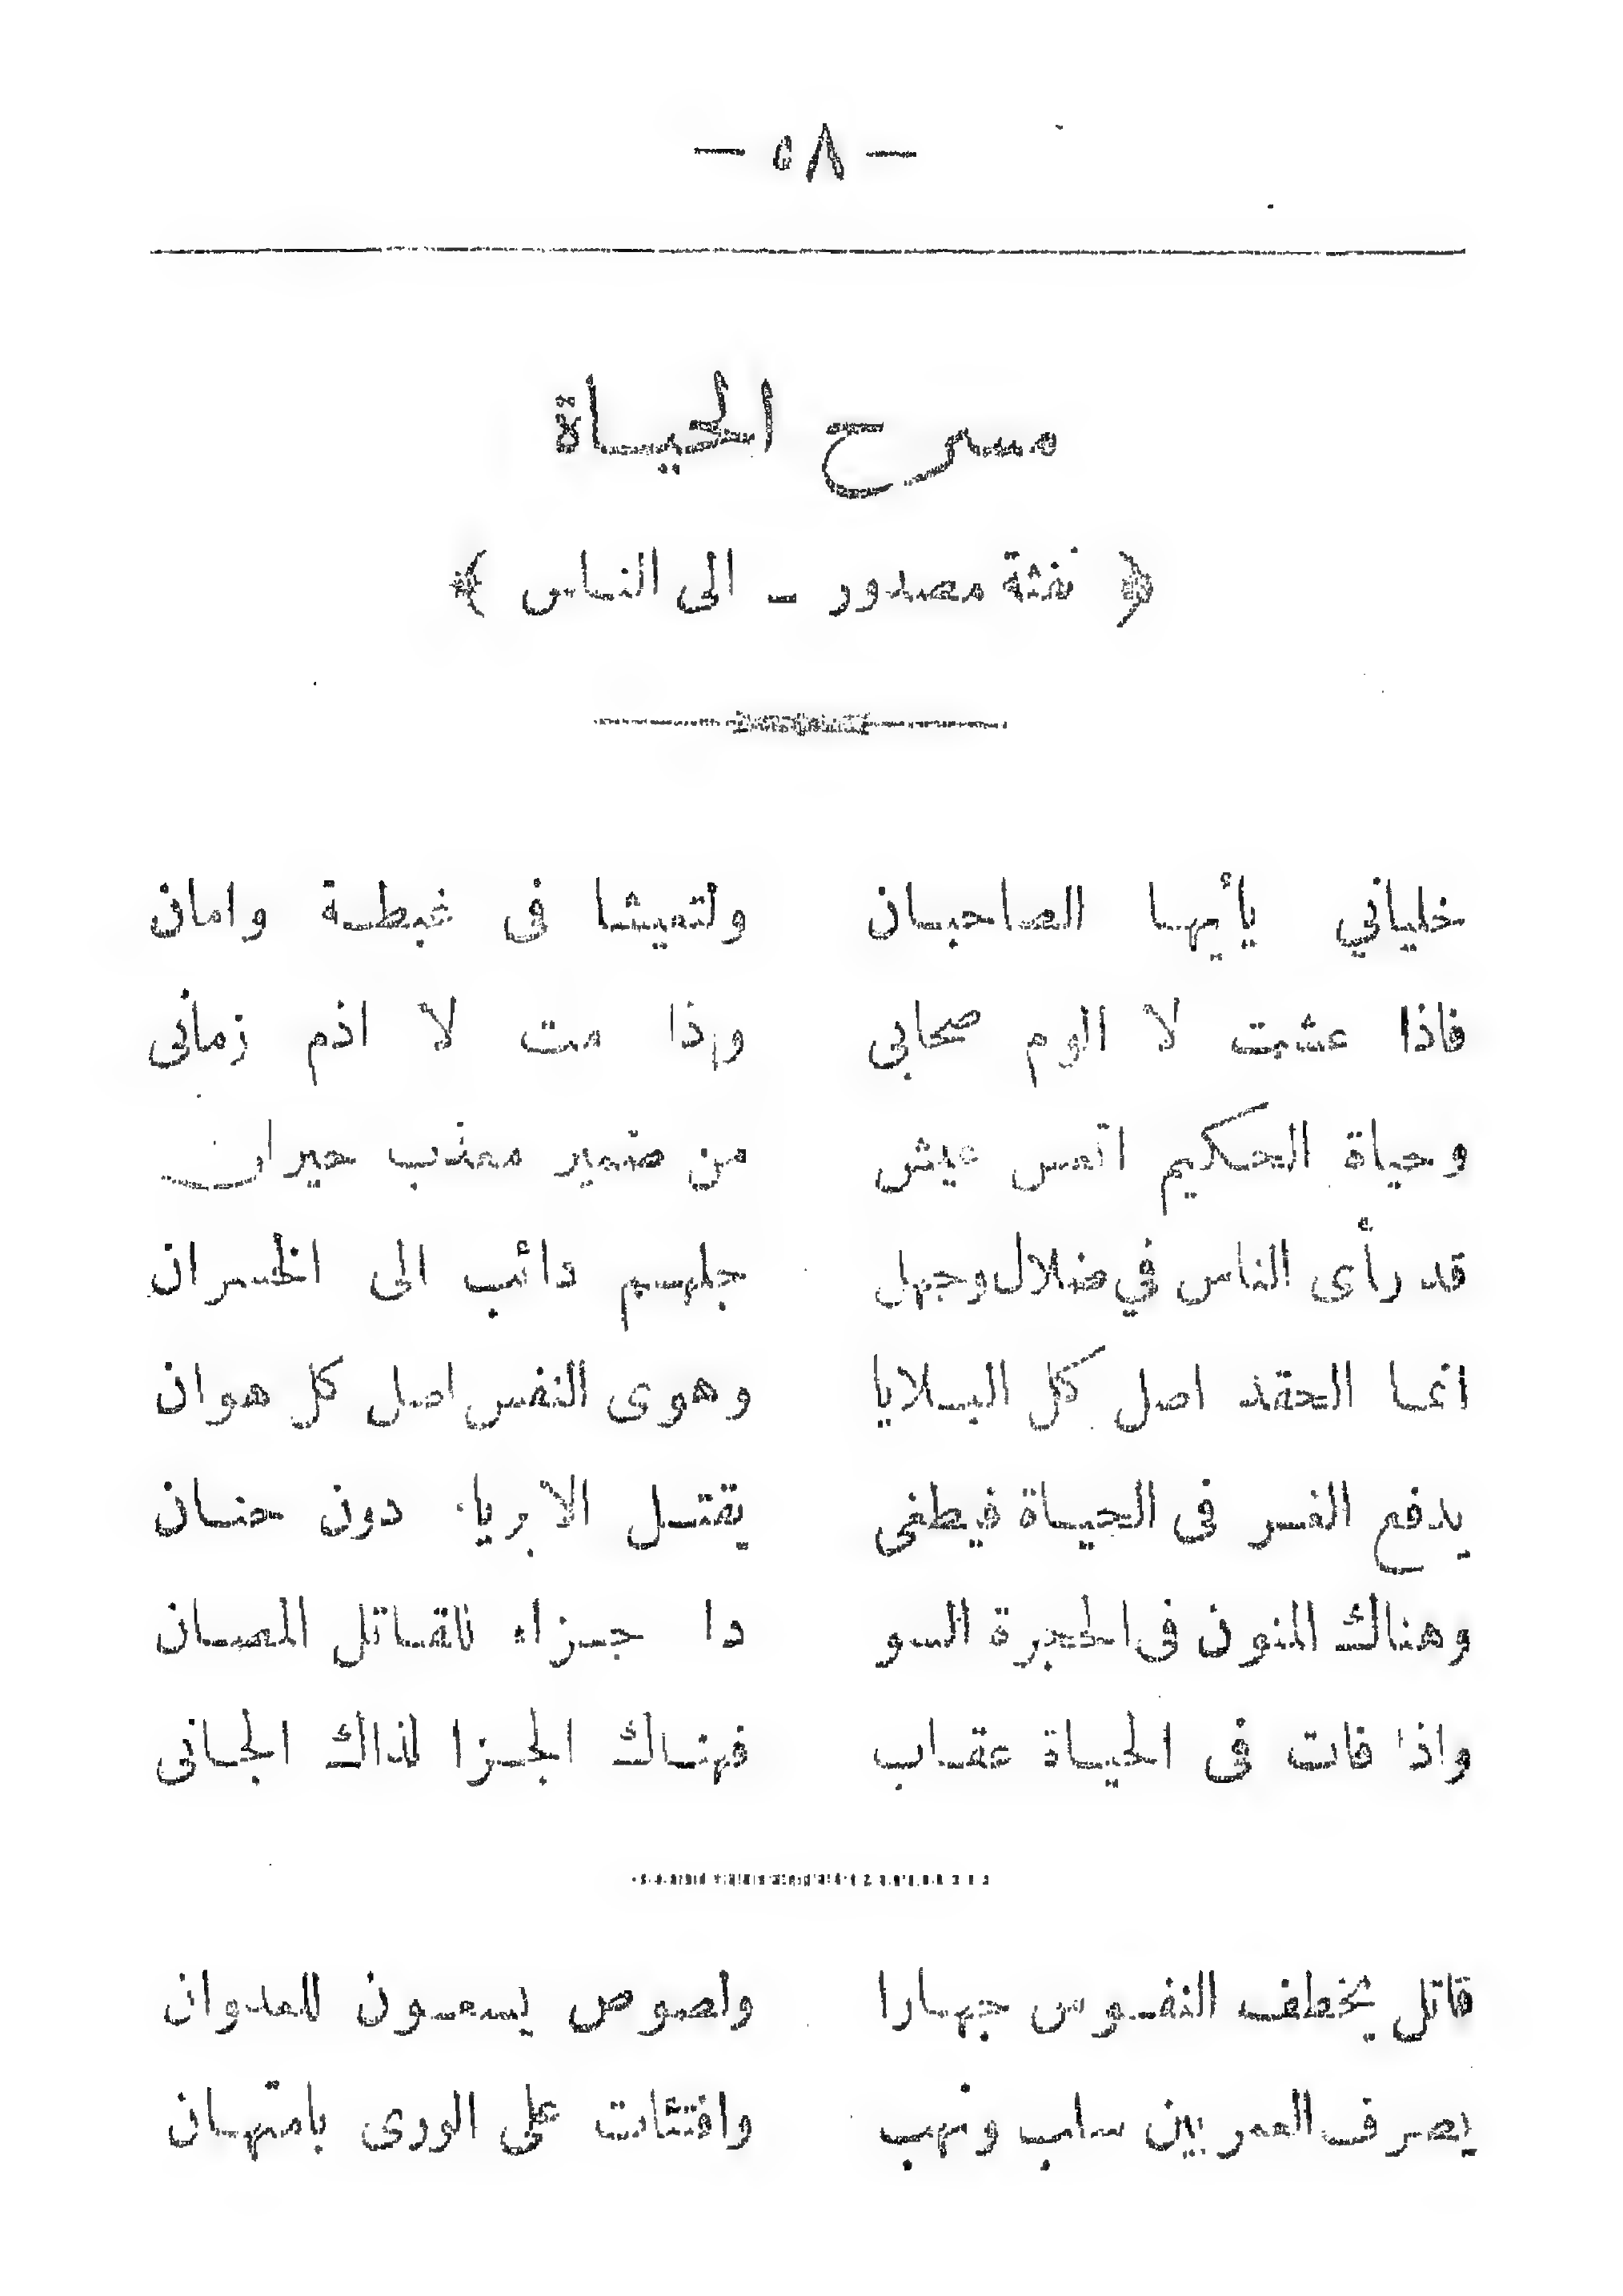 — ٥٨ —
مسرح الحياة
﴿ نفثة مصدور – الى الناس ﴾
خلياني يأيها الصاحبان ولتعيشا فى غبطة وامان
فاذا عشت لا الوم صحابى وإذا مت لا اذم زمانى
وحياة الحكيم اتعس عيش من ضمير معذب حيران
قد رأى الناس في ضلال وجهل جلهم دائب الى الخسران
انما الحقد اصل كل البلايا وهوى النفس اصل كل هوان
يدفع الغر فى الحياة فيطغى يقتل الابرياء دون حنان
وهناك المنون فى الحجرة السو دا جزاء للقاتل المعان
واذا فات فى الحياة عقاب فهناك الجزا لذاك الجانى
قاتل يخطف النفوس جهارا ولصوص يسعون للعدوان
يصرف العمر بين سلب ونهب وافتئات على الورى بامتهان